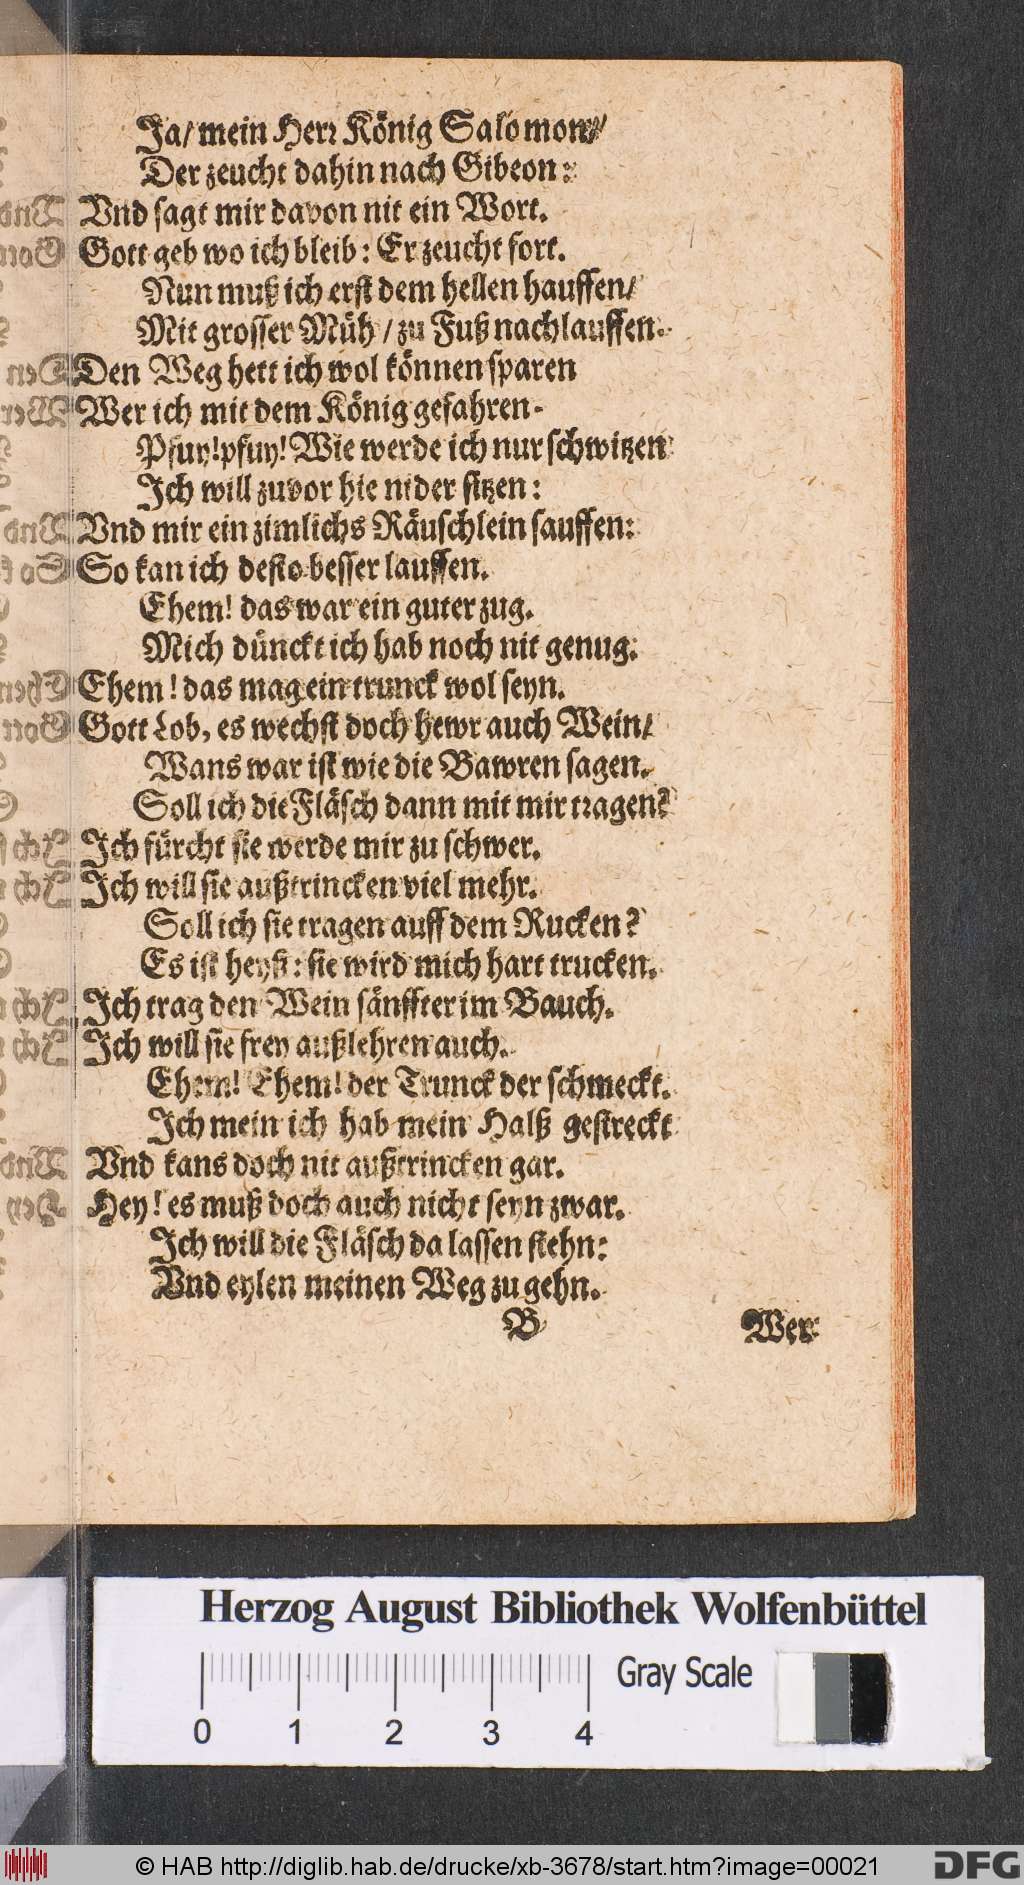 Ja/ mein Herr König Salomon/
Der zeucht dahin nach Gibeon:
Vnd sagt mir davon nit ein Wort.
Gott geb wo ich bleib: Er zeucht fort.
Nun muß ich erst dem hellen hauffen/
Mit grosser Müh / zu Fuß nachlauffen.
Den Weg hett ich wol können sparen
Wer ich mit dem König gefahren.
Pfuy! pfuy! Wie werde ich nur schwitzen
Ich will zuvor hie nider sitzen:
Vnd mir ein zimlichs Räuschlein sauffen:
So kan ich desto besser lauffen.
Ehem! das war ein guter zug.
Mich dünckt ich hab noch nit genug.
Ehem! das mag ein trunck wol seyn.
Gott Lob, es wechst doch hewr auch Wein/
Wans war ist wie die Bawren sagen.
Soll ich die Fläsch dann mit mir tragen?
Ich fürcht sie werde mir zu schwer.
Ich will sie außtrincken viel mehr.
Soll ich sie tragen auff dem Rucken?
Es ist heyß: sie wird mich hart trucken.
Ich trag den Wein sänffter im Bauch.
Ich will sie frey außlehren auch.
Ehem! Ehem! der Trunck der schmeckt.
Ich mein ich hab mein Halß gestreckt
Vnd kans doch nit außtrincken gar.
Hey! es muß doch auch nicht seyn zwar.
Ich will die Fläsch da lassen stehn:
Vnd eylen meinen Weg zu gehn.
B Wer
Herzog August Bibliothek Wolfenbüttel
Gray Scale
0 1 2 3 4
© HAB http://diglib.hab.de/drucke/xb-3678/start.htm?image=00021
DFG